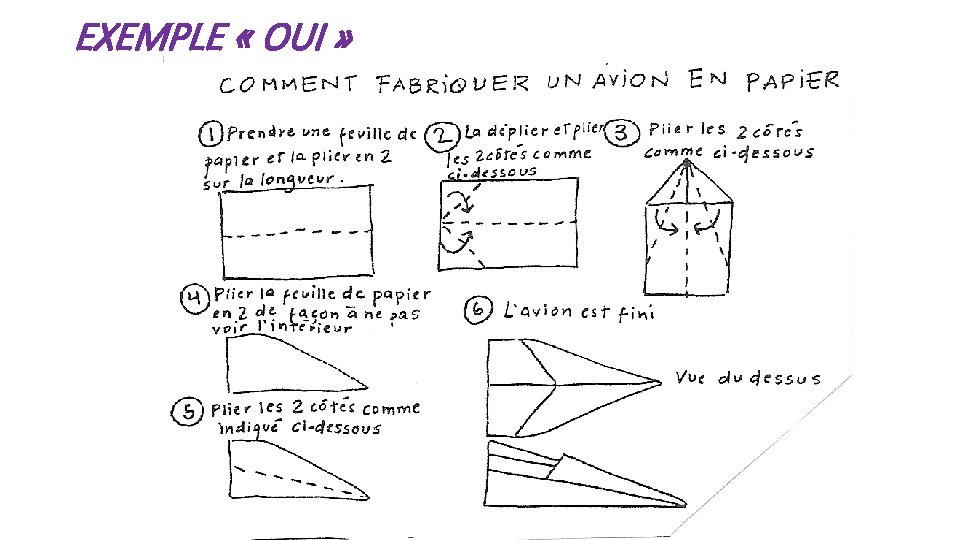 EXEMPLE « OUI »
COMMENT FABRIQUER UN AVION EN PAPIER
1 Prendre une feuille de
papier et la plier en 2
sur la longueur.
2 La déplier et plier
les 2 côtés comme
ci-dessous
3 Plier les 2 côtés
comme ci-dessous
4 Plier la feuille de papier
en 2 de façon à ne pas
voir l'intérieur
5 Plier les 2 côtés comme
indiqué ci-dessous
6 L'avion est fini
Vue du dessus